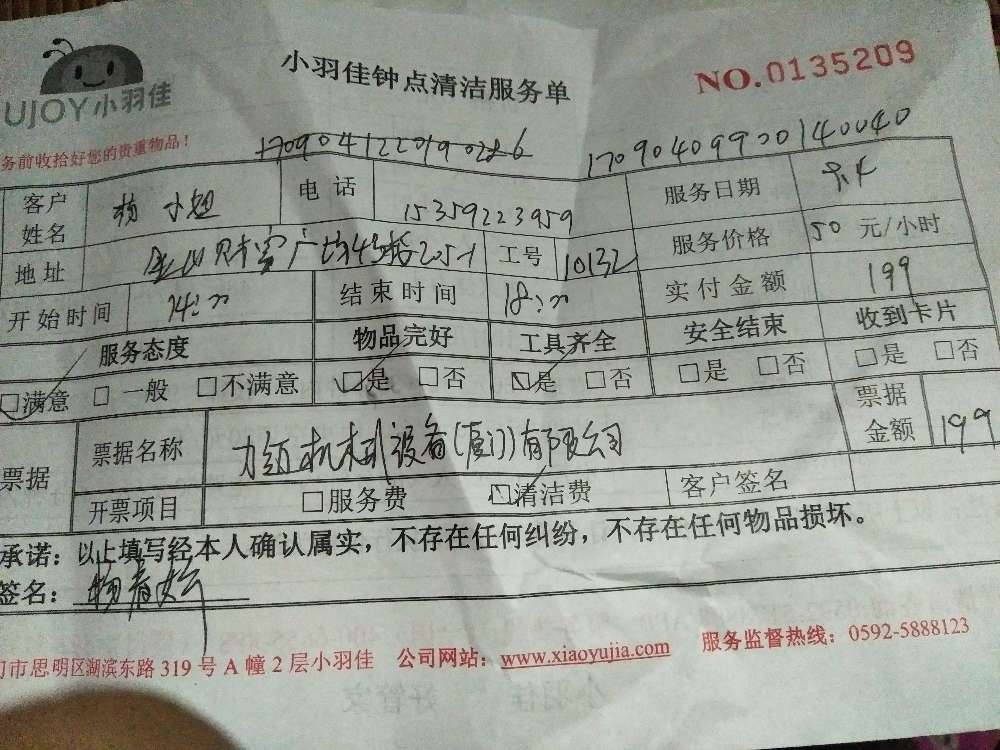 小羽佳钟点清洁服务单
NO.0135209
UJOY小羽佳
务前收拾好您的贵重物品!
17090409920140040
客户姓名 杨小姐 电话 15359223959 服务日期
地址 工号 10132 服务价格 50 元/小时
开始时间 14:00 结束时间 18:00 实付金额 199
服务态度 物品完好 工具齐全 安全结束 收到卡片
□满意 □一般 □不满意 □是 □否 □是 □否 □是 □否 □是 □否
票据 票据名称 力领机械设备(厦门)有限公司 票据金额 199
开票项目 □服务费 □清洁费 客户签名
承诺:以上填写经本人确认属实,不存在任何纠纷,不存在任何物品损坏。
签名:
门市思明区湖滨东路 319 号 A 幢 2 层小羽佳 公司网站:www.xiaoyujia.com 服务监督热线:0592-5888123